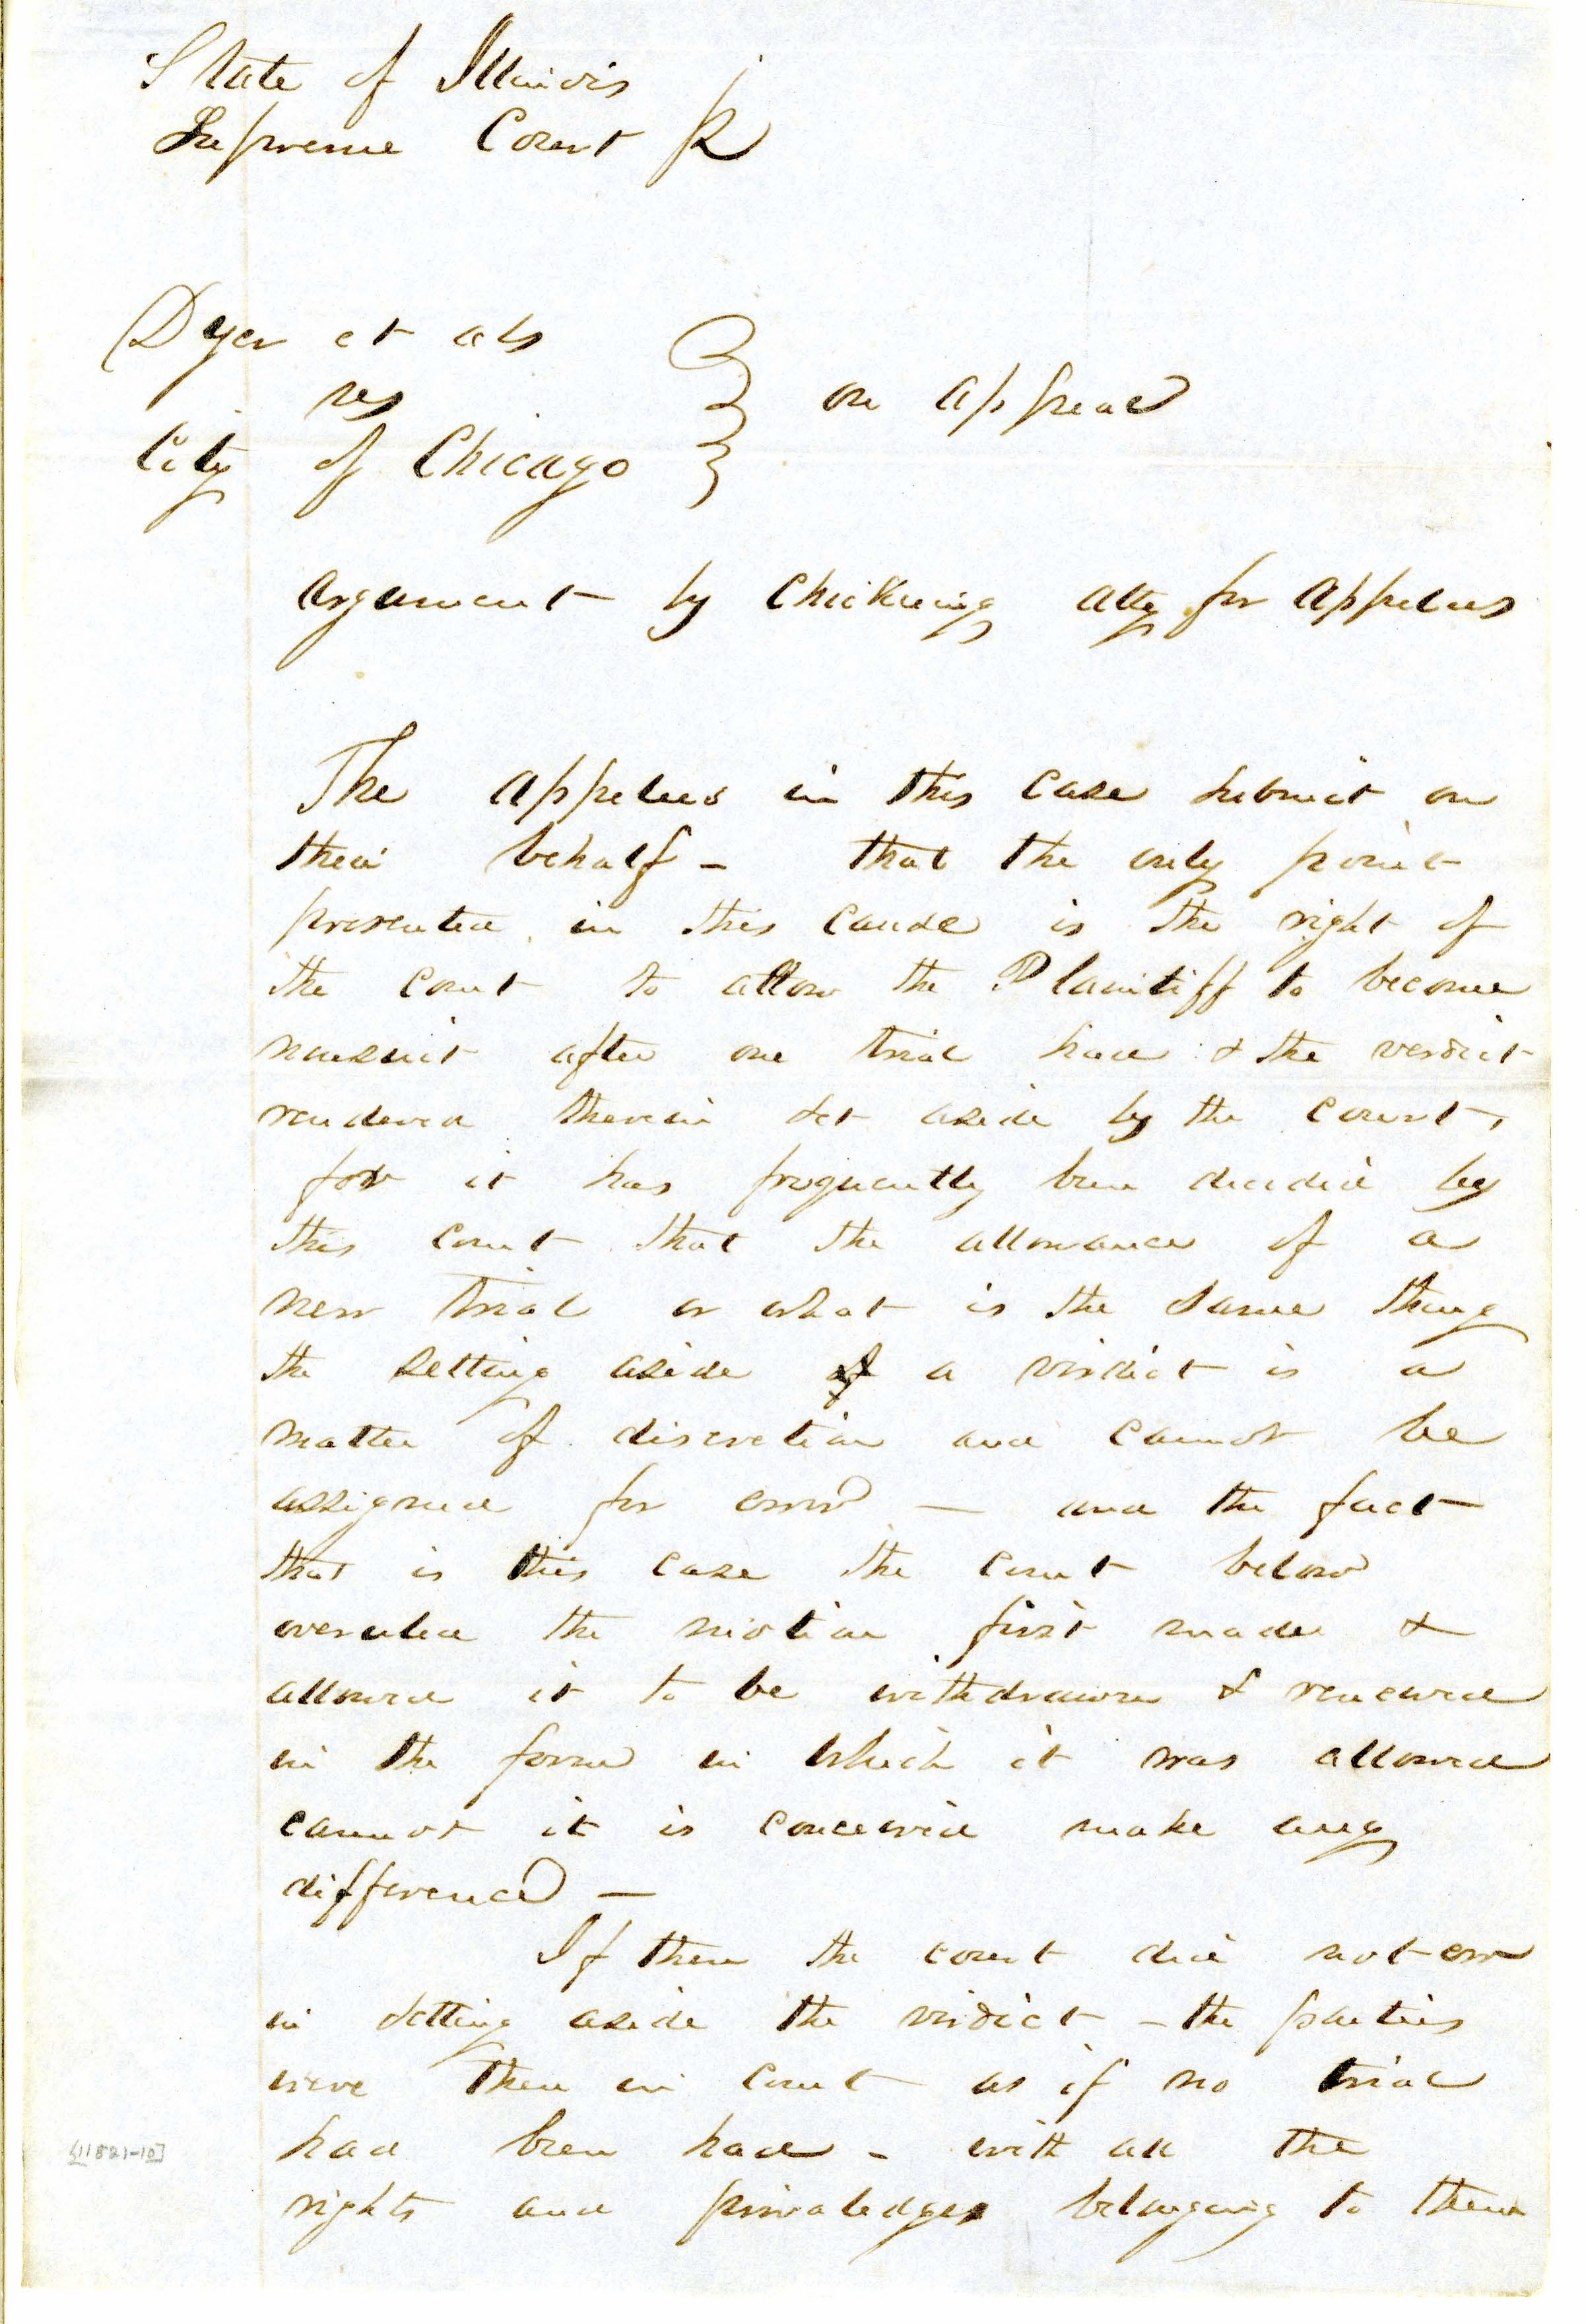 State of Illinois
Supreme Court
Dyer et als
vs
on appeal
City of Chicago
Argument by Chickering Atty for Appelees
The Appelees in this case submit on
their behalf - that the only point
presented in this cause is the right of
the court to allow the Plaintiff to become
nonsuit after one trial had & the verdict
rendered therein set aside by the court,
for it has frequently been decided by
this court that the allowance of a
new trial or what is the same thing
the setting aside of a virdict is a
matter of discretion and cannot be
assigned for error — and the fact
that is this case the court below
overuled the motion first made &
allowed it to be withdrawn & renewed
in the form in which it was allowed
cannot it is conceived make any
difference —
If then the court did not err
in setting aside the virdict - the parties
were then in court as if no trial
had been had - with all the
rights and priviledges belonging to them
[11821-10]